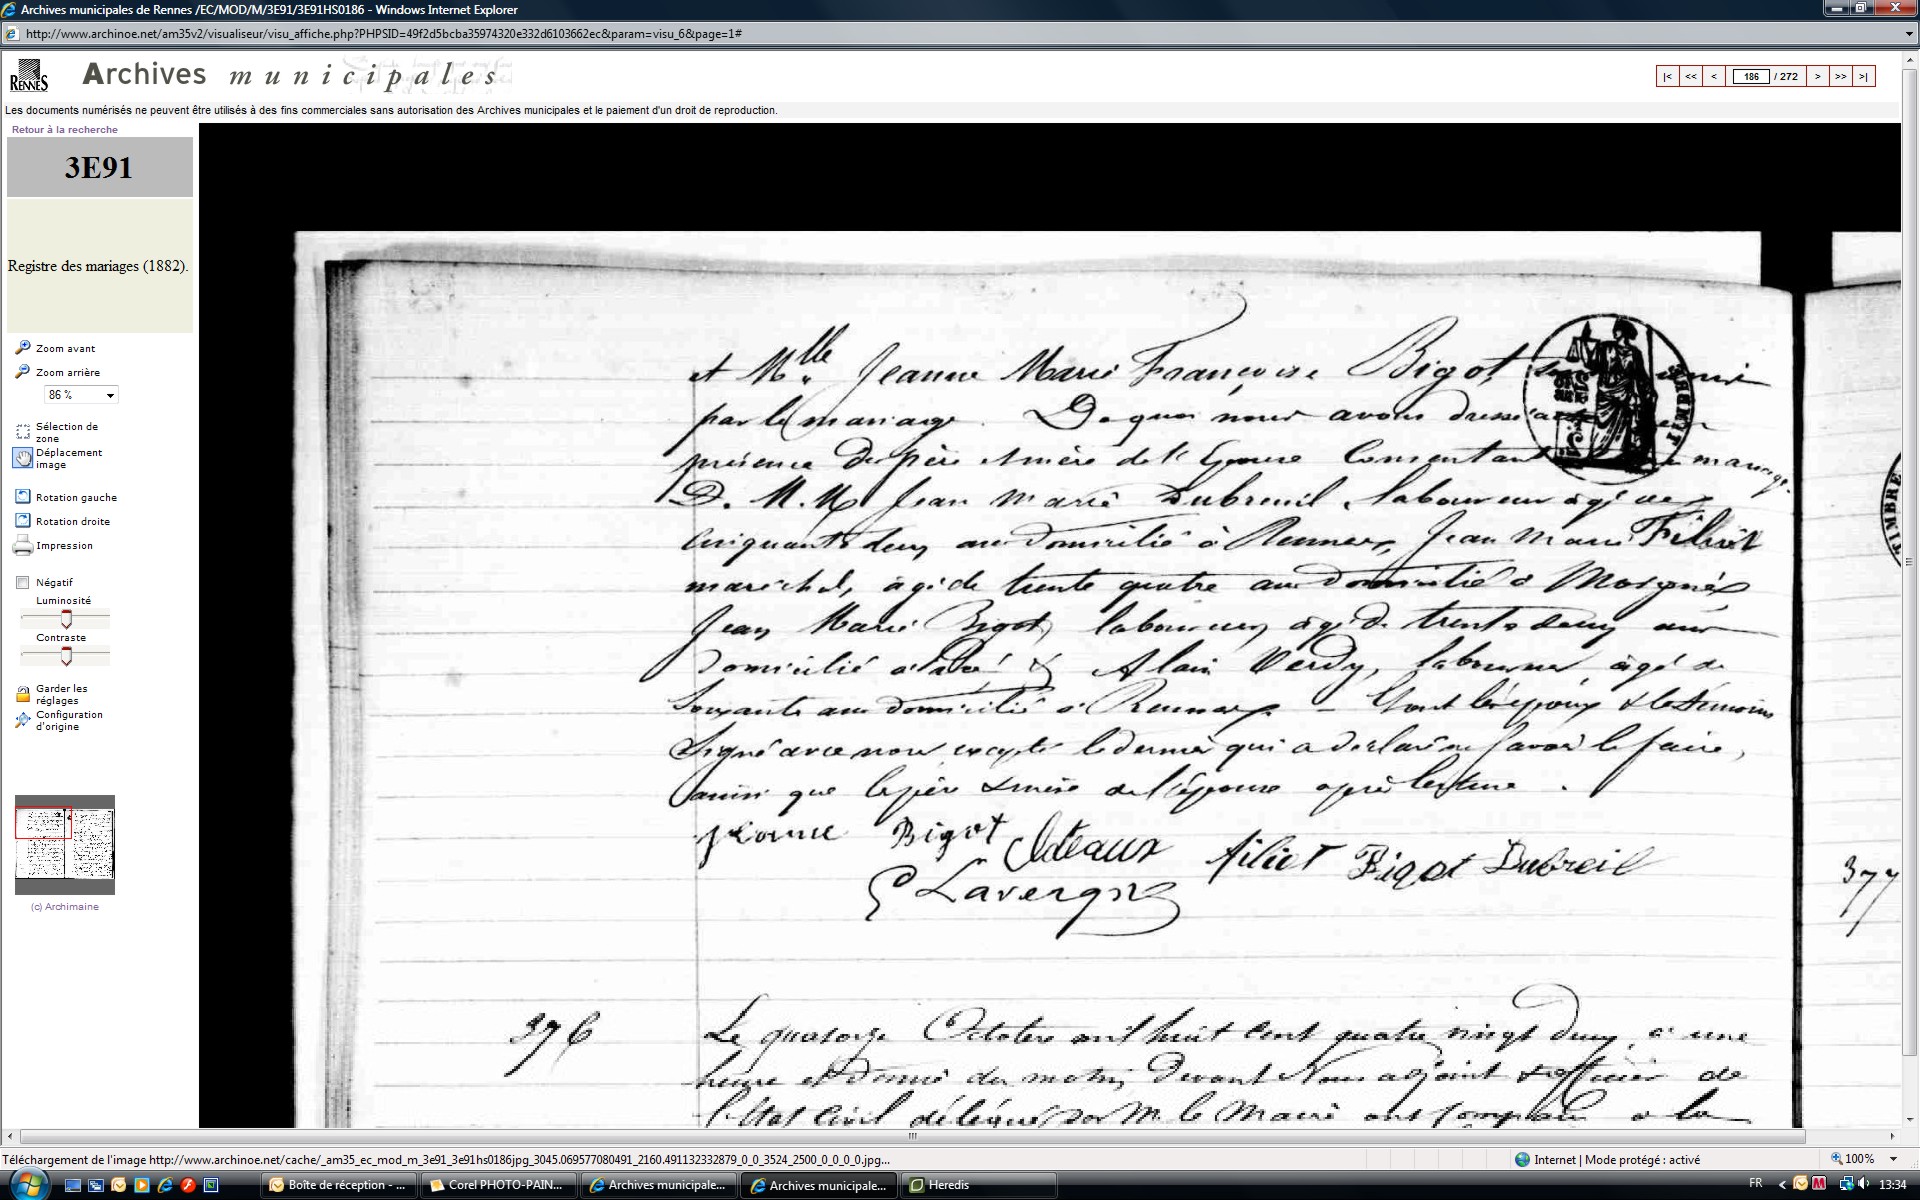 Archives municipales de Rennes /EC/MOD/M/3E91/3E91HS0186 - Windows Internet Explorer
http://www.archinoe.net/am35v2/visualiseur/visu_affiche.php?PHPSID=49f2d5bcba35974320e332d6103662ec&param=visu_6&page=1#
RENNES
Archives municipales
|< << < 186 / 272 > >> >|
Les documents numérisés ne peuvent être utilisés à des fins commerciales sans autorisation des Archives municipales et le paiement d'un droit de reproduction.
Retour à la recherche
3E91
Registre des mariages (1882).
Zoom avant
Zoom arrière
86 %
Sélection de
zone
Déplacement
image
Rotation gauche
Rotation droite
Impression
Négatif
Luminosité
Contraste
Garder les
réglages
Configuration
d'origine
(c) Archimaine
et Mlle Jeanne Marie Françoise Bigot, sont unis
par le mariage. De quoi nous avons dressé acte en
présence des père et mère de l'Epouse Consentant mariage.
D. M.M Jean Marie Dubreuil, laboureur âgé de
Cinquante deux ans domicilié à Rennes, Jean Marie Filiot
maréchal, âgé de trente quatre ans domicilié à Morgné
Jean Marie Bigot, laboureur, âgé de trente deux ans
domicilié à & Alain Verdy, laboureur âgé de
Soixante ans domicilié à Rennes - Dont les époux & les témoins
Signé avec nous excepté le dernier qui a déclaré ne savoir le faire,
ainsi que les père & mère de l'épouse après lecture.
jeanne Bigot
Filiot Bigot Dubreil
Lavergne
TIMBRE
377
376
Le quatorze Octobre mil huit cent quatre vingt deux, à une
heure et demie du matin, Devant Nous adjoint & officier de
l'Etat Civil délégué par M. le Maire ont comparu à la
Téléchargement de l'image http://www.archinoe.net/cache/_am35_ec_mod_m_3e91_3e91hs0186jpg_3045.069577080491_2160.491132332879_0_0_3524_2500_0_0_0_0.jpg...
Internet | Mode protégé : activé
100%
Boîte de réception - ...
Corel PHOTO-PAIN...
Archives municipale...
Archives municipale...
Heredis
FR
13:34